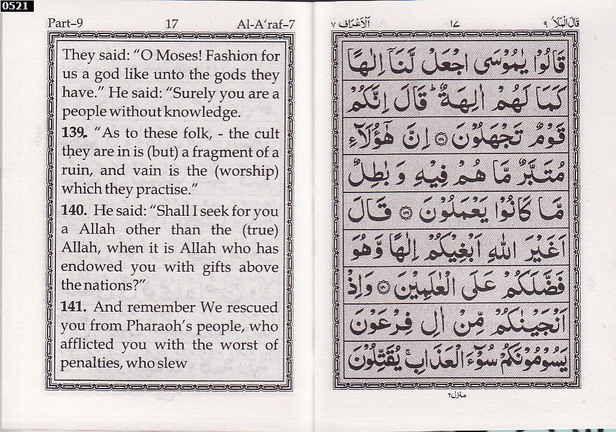 0521
Part-9 17 Al-A'raf-7
They said: "O Moses! Fashion for
us a god like unto the gods they
have." He said: "Surely you are a
people without knowledge.
139. "As to these folk, - the cult
they are in is (but) a fragment of a
ruin, and vain is the (worship)
which they practise."
140. He said: "Shall I seek for you
a Allah other than the (true)
Allah, when it is Allah who has
endowed you with gifts above
the nations?"
141. And remember We rescued
you from Pharaoh's people, who
afflicted you with the worst of
penalties, who slew
قال الملأ ٩ ١٧ الاعراف ٧
قَالُوْا يٰمُوْسَى اجْعَلْ لَّنَاۤ اِلٰهًا
كَمَا لَهُمْ اٰلِهَةٌ ؕ قَالَ اِنَّكُمْ
قَوْمٌ تَجْهَلُوْنَ ۝١٣٨ اِنَّ هٰۤؤُلَآءِ
مُتَبَّرٌ مَّا هُمْ فِيْهِ وَ بٰطِلٌ
مَّا كَانُوْا يَعْمَلُوْنَ ۝١٣٩ قَالَ
اَغَيْرَ اللّٰهِ اَبْغِيْكُمْ اِلٰهًا وَّهُوَ
فَضَّلَكُمْ عَلَى الْعٰلَمِيْنَ ۝١٤٠ وَاِذْ
اَنْجَيْنٰكُمْ مِّنْ اٰلِ فِرْعَوْنَ
يَسُوْمُوْنَكُمْ سُوْٓءَ الْعَذَابِ ۚ يُقَتِّلُوْنَ
منزل ٢